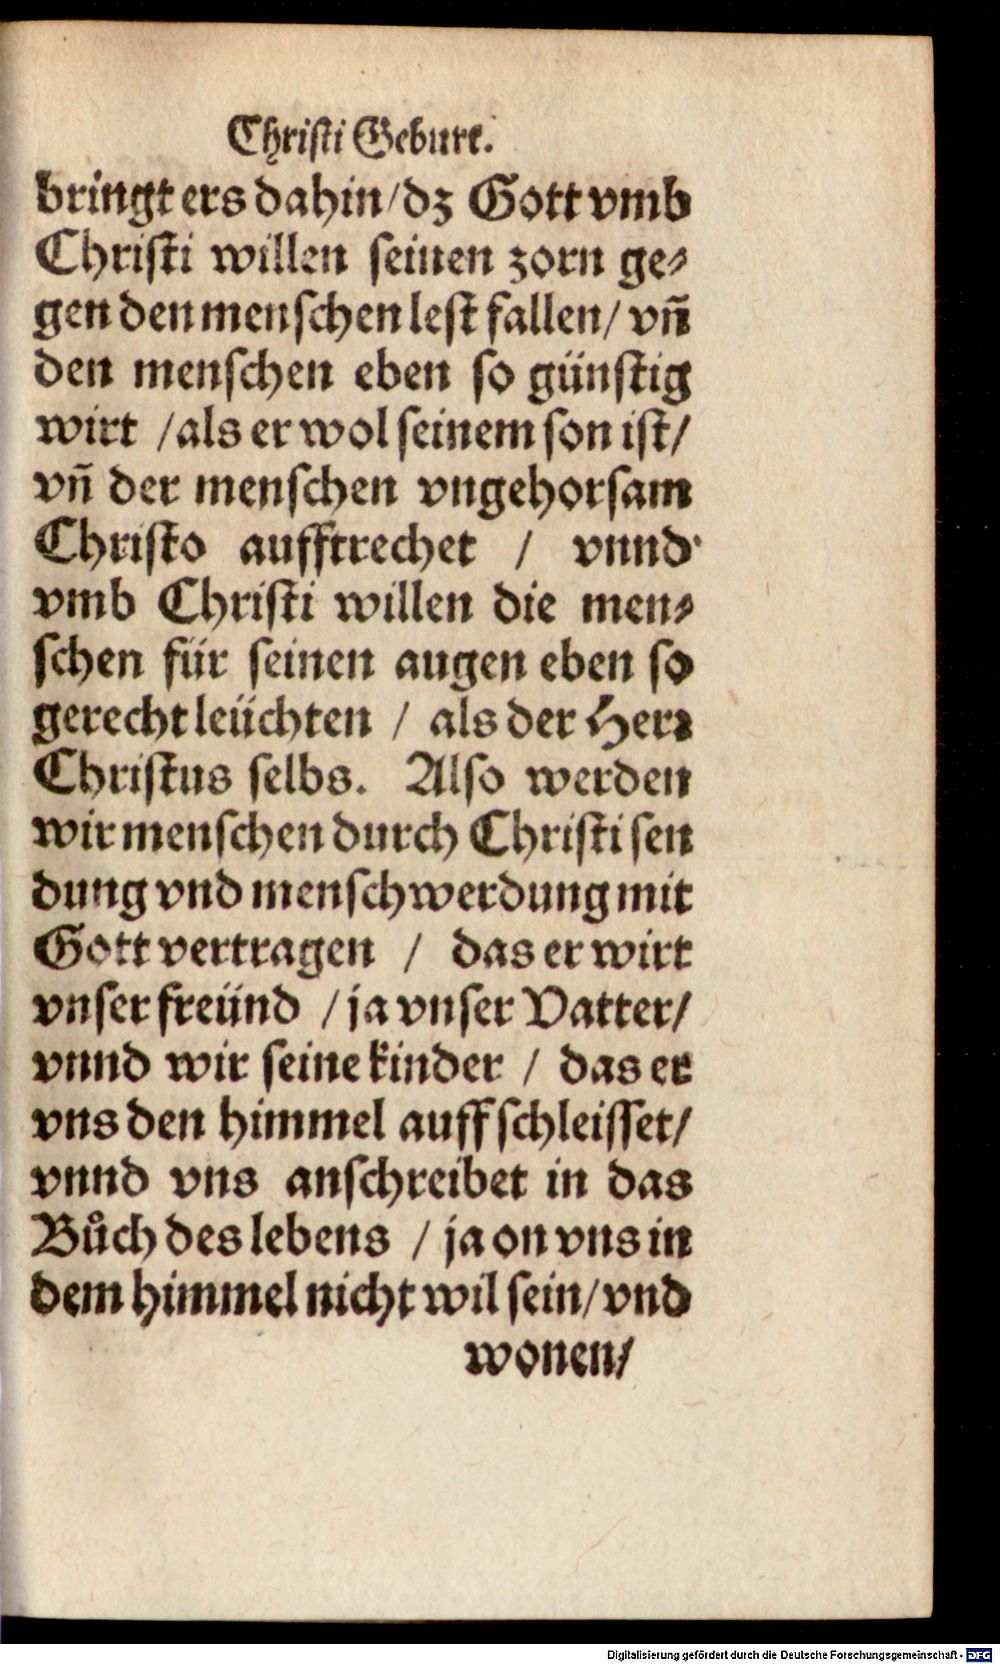 Christi Geburt.
bringt ers dahin/dz Gott vmb
Christi willen seinen zorn ge⸗
gen den menschen lest fallen/ vn̄
den menschen eben so günstig
wirt /als er wol seinem son ist/
vn̄ der menschen vngehorsam
Christo aufftrechet / vnnd
vmb Christi willen die men⸗
schen für seinen augen eben so
gerecht leüchten / als der Herꝛ
Christus selbs. Also werden
wir menschen durch Christi sen
dung vnd menschwerdung mit
Gott vertragen / das er wirt
vnser freünd /ja vnser Vatter/
vnnd wir seine kinder / das er
vns den himmel auff schleisset/
vnnd vns anschreibet in das
Bůch des lebens / ja on vns in
dem himmel nicht wil sein/vnd
wonen/
Digitalisierung gefördert durch die Deutsche Forschungsgemeinschaft - DFG